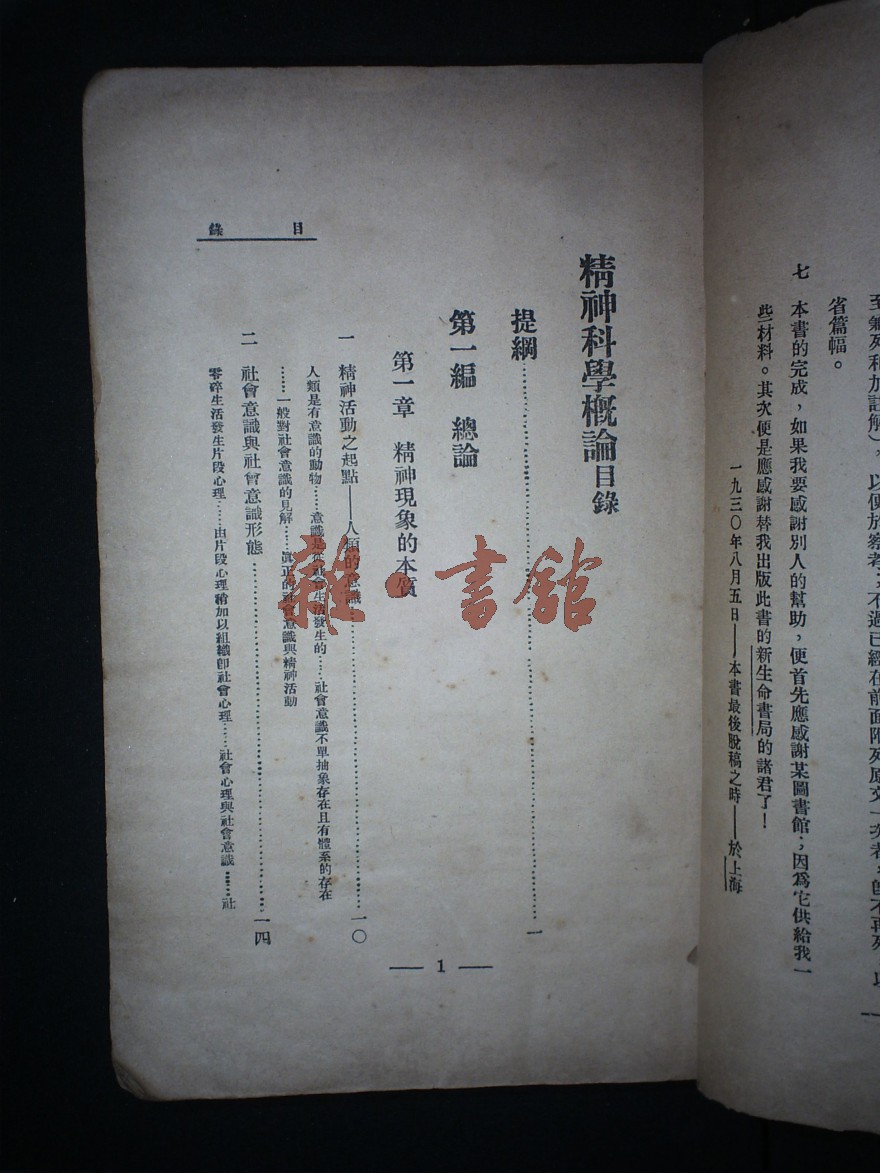 省篇幅。
七 本書的完成，如果我要感謝別人的幫助，便首先應感謝某圖書館；因爲它供給我一
些材料。其次便是應感謝替我出版此書的新生命書局的諸君了！
一九三〇年八月五日——本書最後脫稿之時——於上海
精神科學概論目錄
提綱……一
第一編 總論
第一章 精神現象的本質
一 精神活動之起點——人類的意識……一〇
人類是有意識的動物……意識是從社會生活發生的……社會意識不單抽象存在且有體系的存在
……一般對社會意識的見解……眞正的社會意識與精神活動
二 社會意識與社會意識形態……一四
零碎生活發生片段心理……由片段心理稍加以組織卽社會心理……社會心理與社會意識……社
目錄
— 1 —
雜·書館